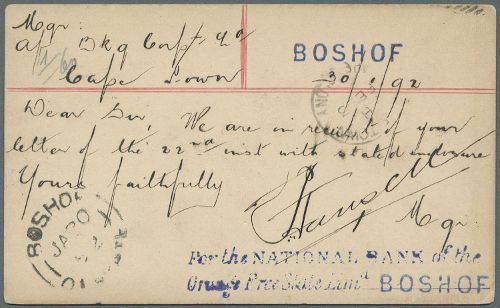 Mgr:
Af. Bkg Corpt. Ld
1/60
Cape Town
BOSHOF
30/1/92
Dear Sir,
We are in receipt of your
letter of the 22nd inst with stated inclosure
Yours faithfully
Mgr:
BOSHOF
JA 30
For the NATIONAL BANK of the
Orange Free State Limd.
BOSHOF